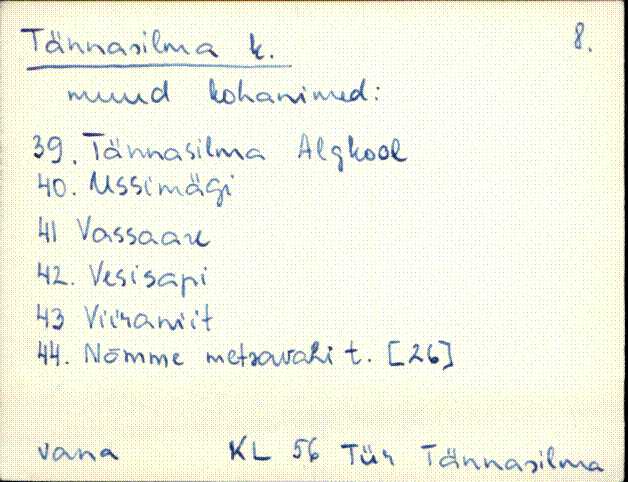 Tännasilma k. 8.
muud kohanimed:
39. Tännasilma Algkool
40. Ussimägi
41 Vassaare
42. Vesisapi
43 Viiraniit
44. Nõmme metsavahi t. [26]
vana KL 56 Tür Tännasilma